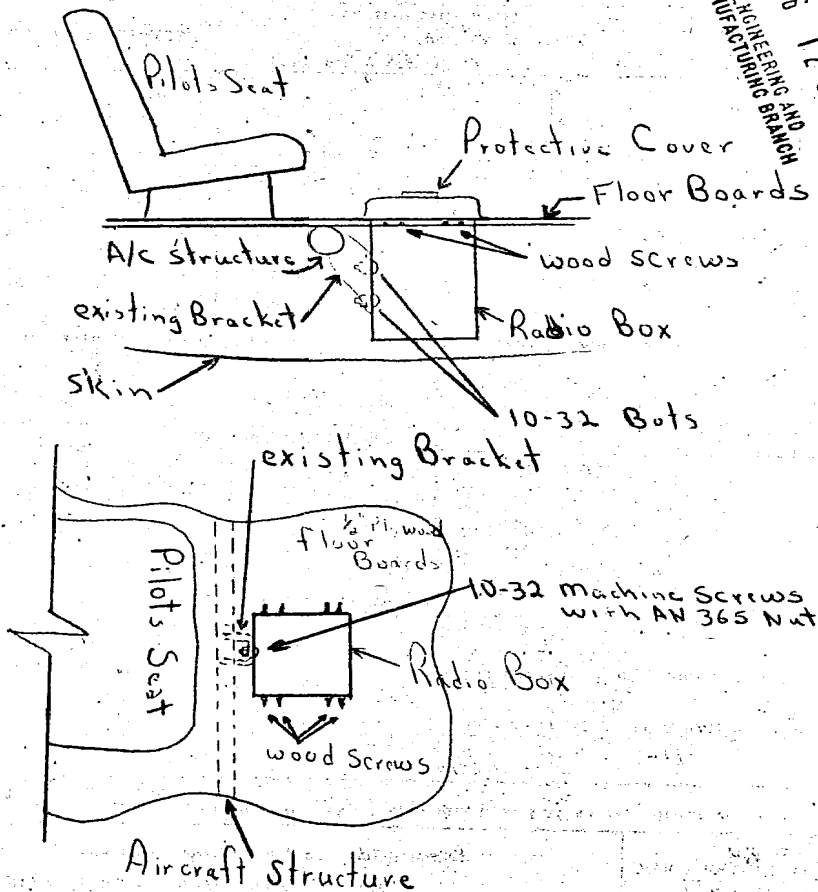 ENGINEERING AND
MANUFACTURING BRANCH
Pilots Seat
Protective Cover
Floor Boards
A/c structure
wood screws
existing Bracket
Radio Box
Skin
10-32 Bots
existing Bracket
1/2" Plywood
floor
Boards
Pilots Seat
10-32 Machine Screws
with AN 365 Nut
Radio Box
wood Screws
Aircraft structure